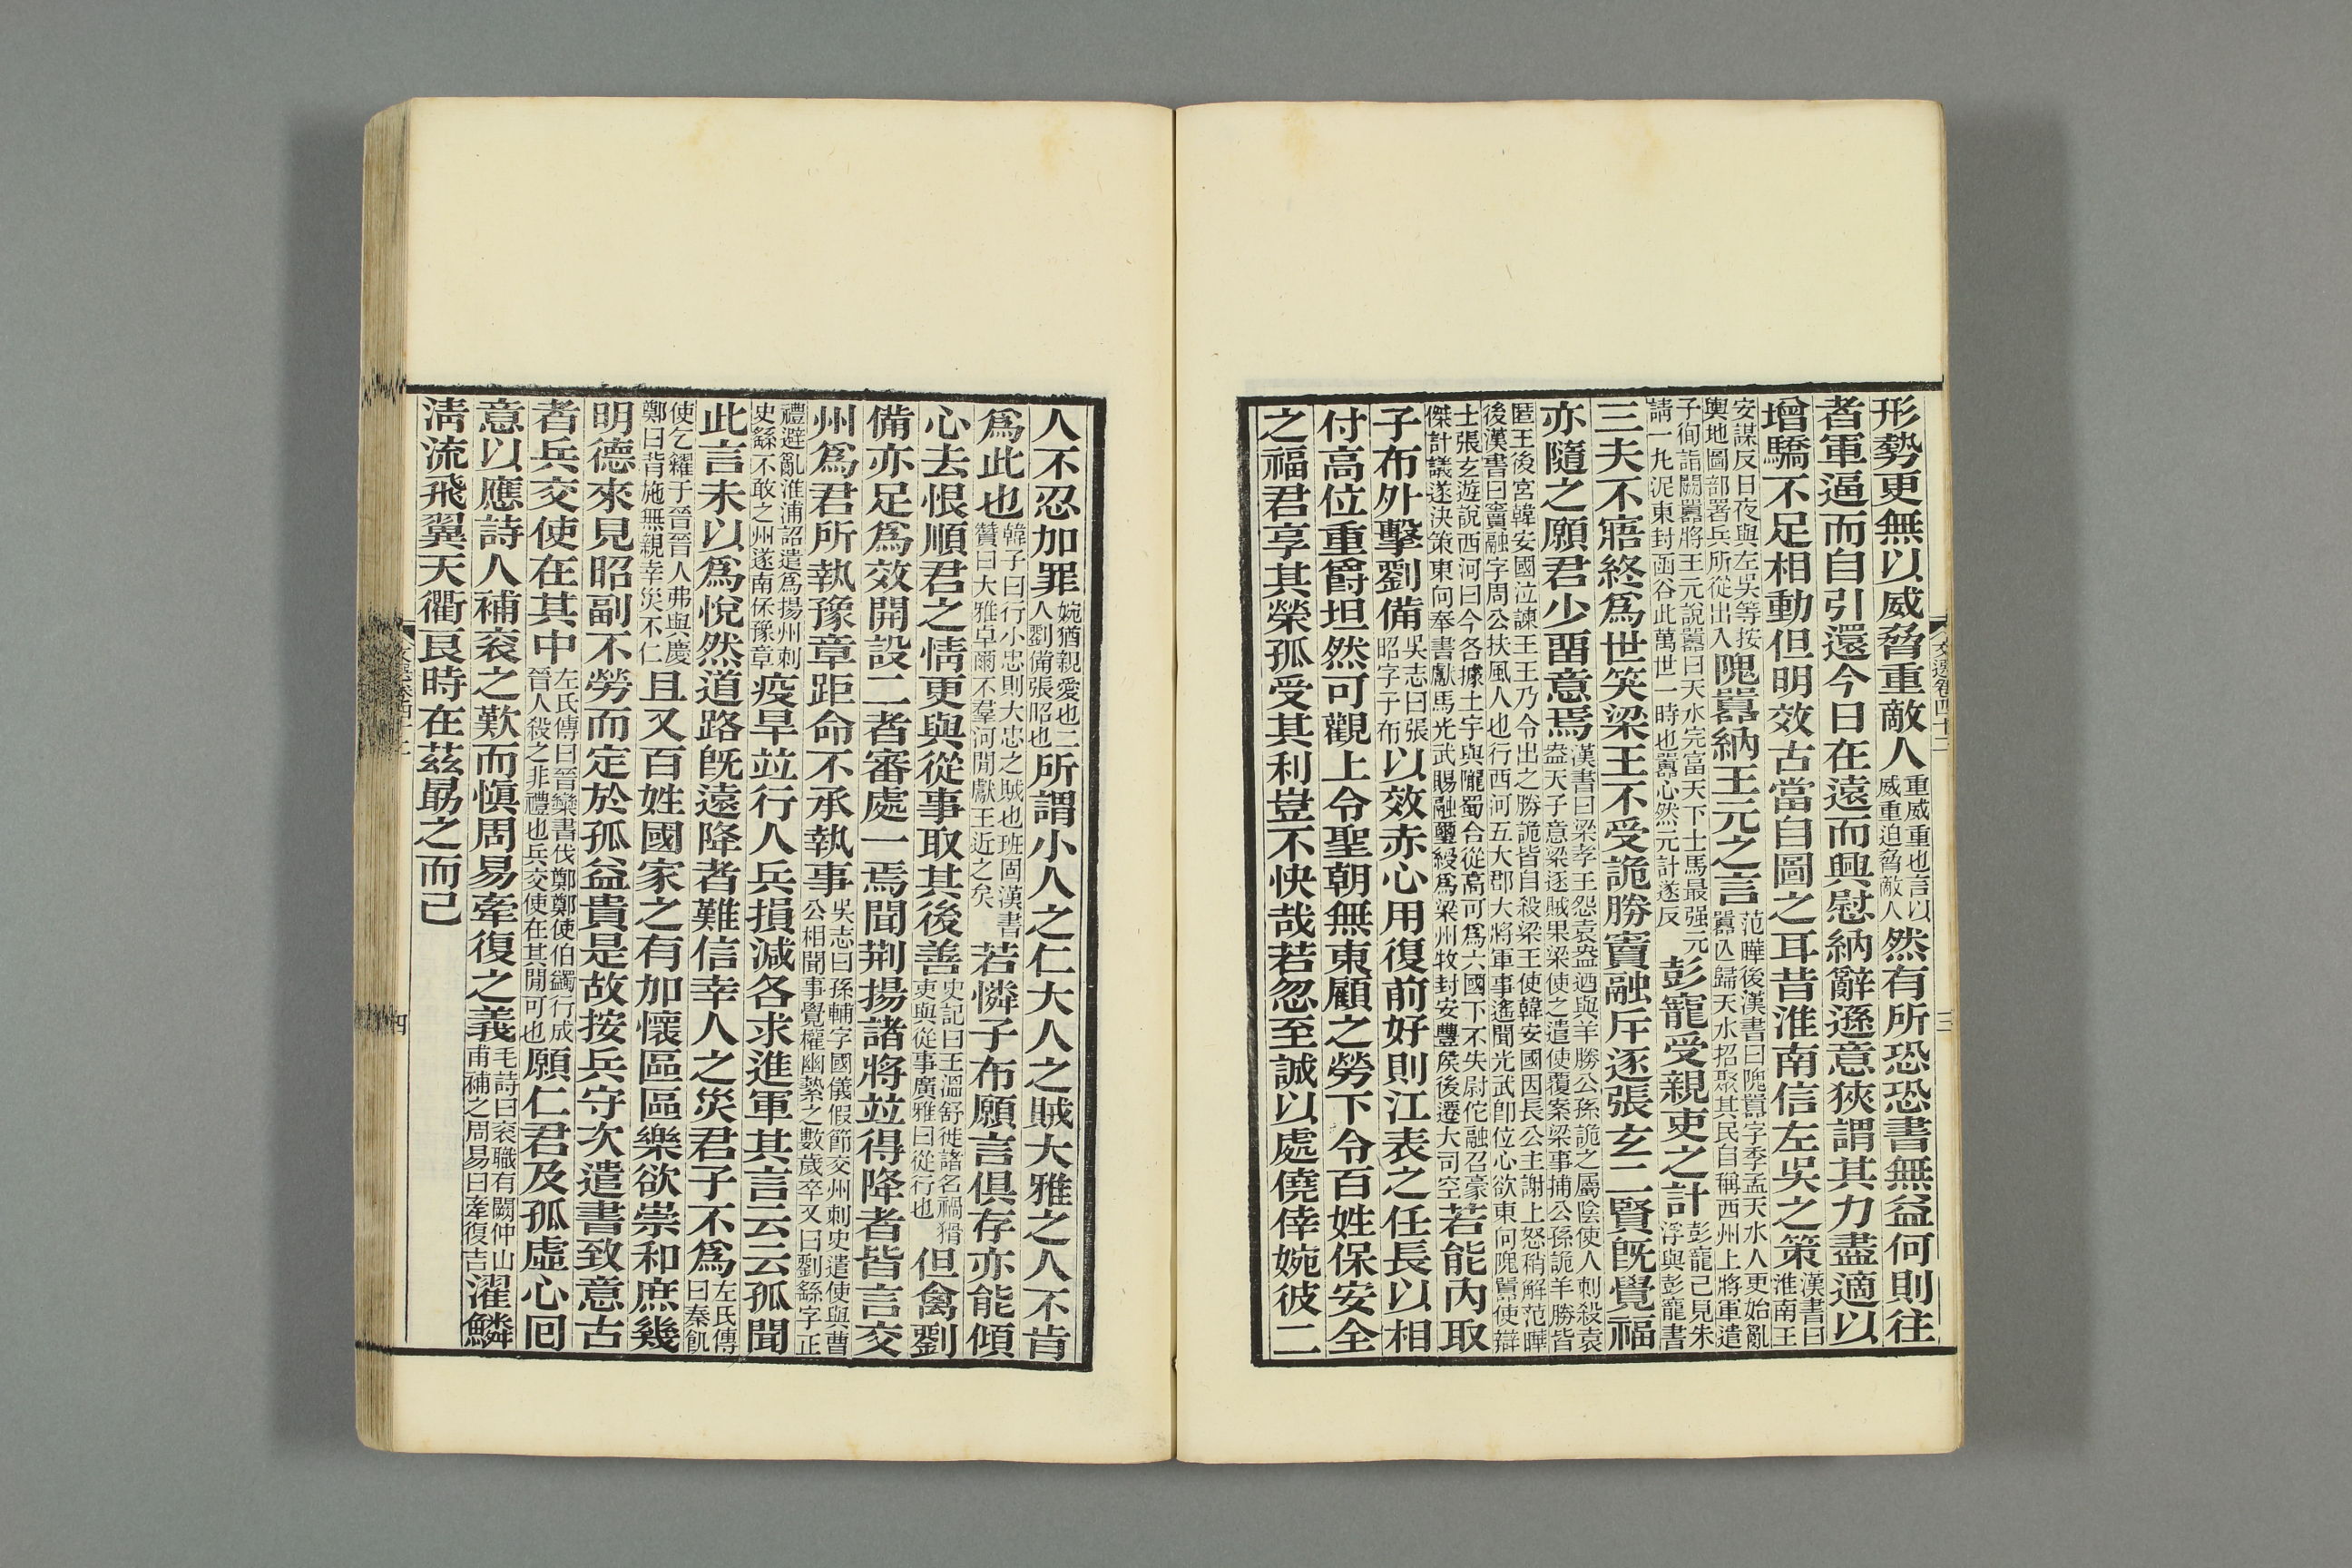 形勢更無以威脅重敵人重威重也言以威重迫脅敵人然有所恐恐書無益何則往
者軍逼而自引還今日在遠而興慰納辭遜意狹謂其力盡適以
增驕不足相動但明效古當自圖之耳昔淮南信左吳之策漢書曰淮南王
安謀反日夜與左吳等按輿地圖部署兵所從出入隗囂納王元之言范曄後漢書曰隗囂字季孟天水人更始亂囂亡歸天水招聚其民自稱西州上將軍遣
子恂詣闕囂將王元說囂曰天水完富天下士馬最强元請一丸泥東封函谷此萬世一時也囂心然元計遂反彭寵受親吏之計彭寵已見朱浮與彭寵書
三夫不寤終爲世笑梁王不受詭勝竇融斥逐張玄二賢旣覺福
亦隨之願君少畱意焉漢書曰梁孝王怨袁盎迺與羊勝公孫詭之屬陰使人刺殺袁盎天子意梁逐賊果梁使之遣使覆案梁事捕公孫詭羊勝皆
匿王後宮韓安國泣諫王王乃令出之勝詭皆自殺梁王使韓安國因長公主謝上怒稍解范曄後漢書曰竇融字周公扶風人也行西河五大郡大將軍事遙聞光武卽位心欲東向隗囂使辯
士張玄遊說西河曰今各據土宇與隴蜀合從高可爲六國下不失尉佗融召豪傑計議遂決策東向奉書獻馬光武賜融璽綬爲梁州牧封安豐矦後遷大司空若能內取
子布外擊劉備吳志曰張昭字子布以效赤心用復前好則江表之任長以相
付高位重爵坦然可觀上令聖朝無東顧之勞下令百姓保安全
之福君享其榮孤受其利豈不快哉若忽至誠以處僥倖婉彼二
文選卷四十二
三
人不忍加罪婉猶親愛也二人劉備張昭也所謂小人之仁大人之賊大雅之人不肯
爲此也韓子曰行小忠則大忠之賊也班固漢書贊曰大雅卓爾不羣河閒獻王近之矣若憐子布願言俱存亦能傾
心去恨順君之情更與從事取其後善史記曰王溫舒徙諸名禍猾吏與從事廣雅曰從行也但禽劉
備亦足爲效開設二者審處一焉聞荆揚諸將竝得降者皆言交
州爲君所執豫章距命不承執事吳志曰孫輔字國儀假節交州刺史遣使與曹公相聞事覺權幽縶之數歲卒又曰劉繇字正
禮避亂淮浦詔遣爲揚州刺史繇不敢之州遂南保豫章疫旱竝行人兵損減各求進軍其言云云孤聞
此言未以爲悅然道路旣遠降者難信幸人之災君子不爲左氏傳曰秦飢
使乞糴于晉晉人弗與慶鄭曰背施無親幸災不仁且又百姓國家之有加懷區區樂欲崇和庶幾
明德來見昭副不勞而定於孤益貴是故按兵守次遣書致意古
者兵交使在其中左氏傳曰晉欒書伐鄭鄭使伯蠲行成晉人殺之非禮也兵交使在其閒可也願仁君及孤虛心回
意以應詩人補衮之歎而愼周易牽復之義毛詩曰衮職有闕仲山甫補之周易曰牽復吉濯鱗
淸流飛翼天衢良時在茲勗之而已
四